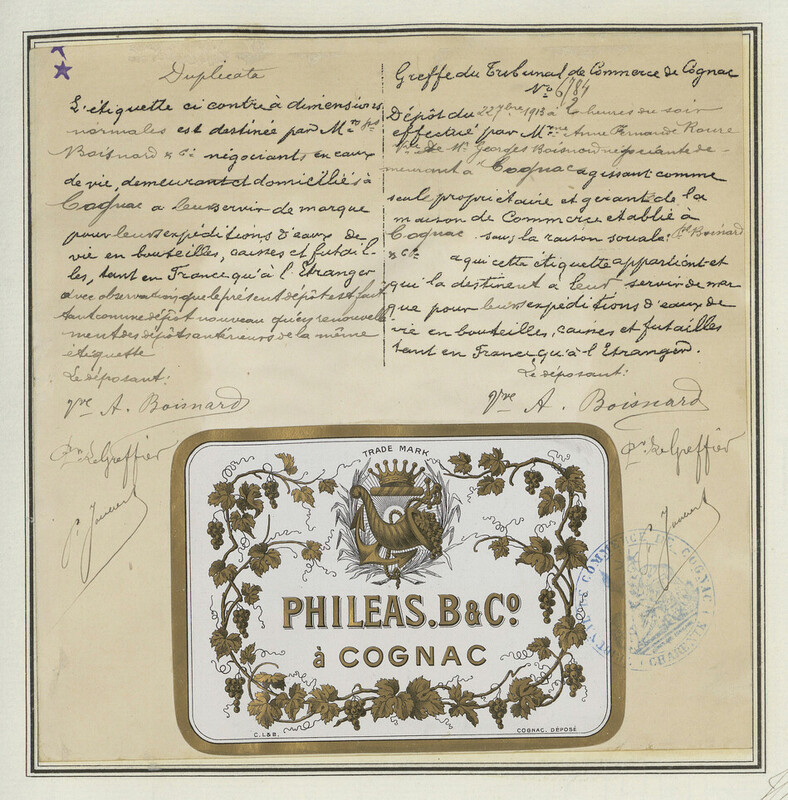 Duplicata
L'étiquette ci contre à dimensions
normales est destinée par M.rs
Boisnard & Cie négociants en eaux
de vie, demeurant et domiciliés à
Cognac a leur servir de marque
pour leurs expéditions d'eaux de
vie en bouteilles, caisses et futail-
les, tant en France qu'à l'Etranger
avec observation que le présent dépôt est fait
tant comme dépôt nouveau qu'en renouvelle
ment des dépôts antérieurs de la même
étiquette
Le déposant:
Vve A. Boisnard
Pr Le Greffier
Greffe du Tribunal de Commerce de Cognac
No 6784
Dépôt du 22 7bre 1913 à 2 heures du soir
effectué par Mme Anne Fernande Roure
Vve de Mr Georges Boisnard négociante de-
meurant à Cognac agissant comme
seule propriétaire et gérant de la
maison de Commerce établie à
Cognac sous la raison sociale: Boisnard
& Co a qui cette étiquette appartient et
qui la destinent à leur servir de mar
que pour leurs expéditions d'eaux de
vie en bouteilles, caisses et futailles
tant en France qu'à l'Etranger.
Le déposant:
Vve A. Boisnard
Pr Le Greffier
TRADE MARK
PHILEAS.B&Co.
à COGNAC
C. L&B.
COGNAC. DÉPOSÉ
COMMERCE DE COGNAC
CHARENTE